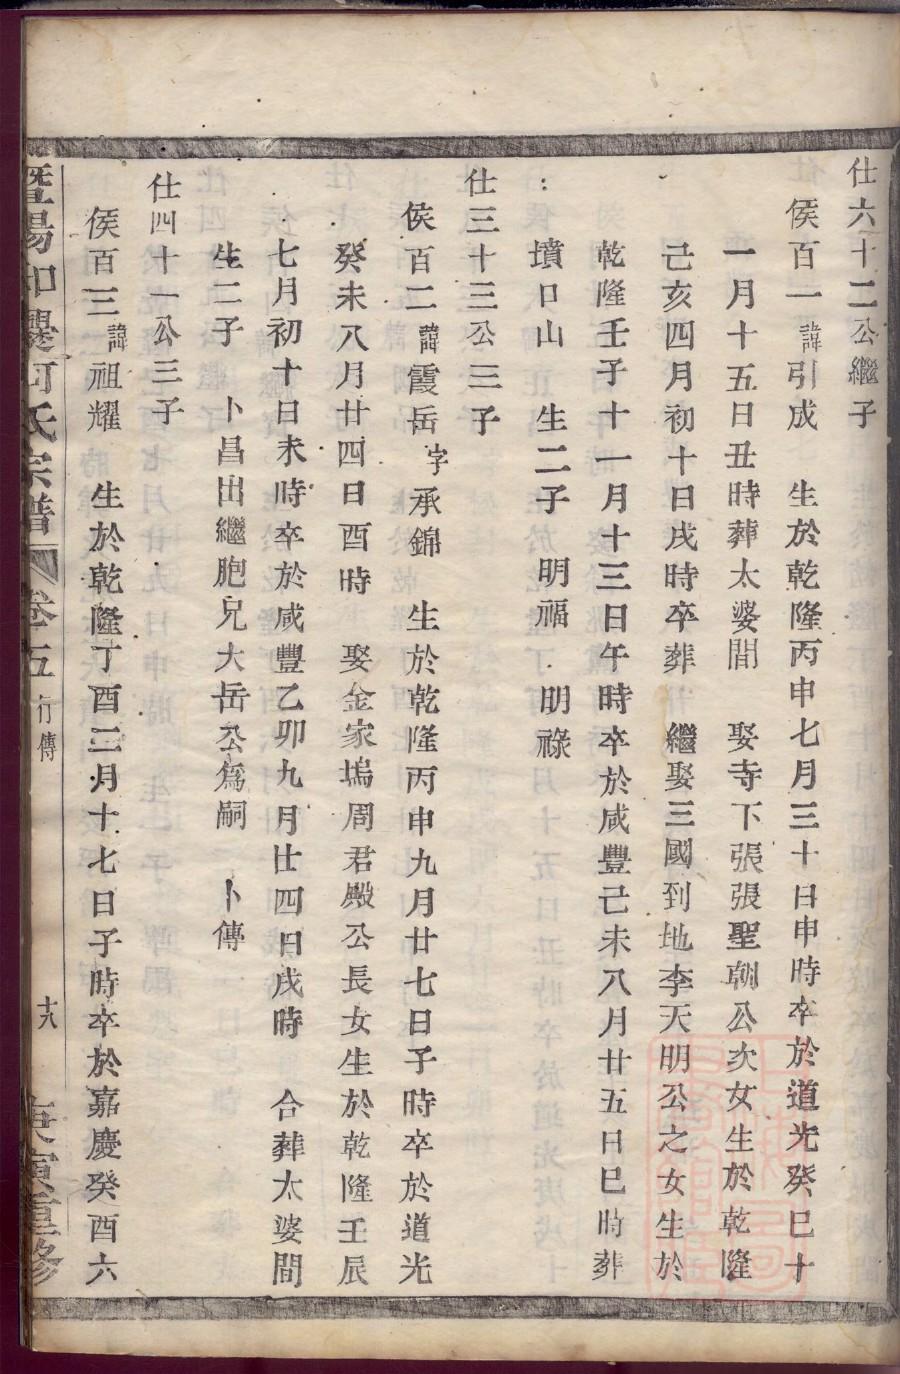 仕六十二公繼子
侯百一諱引成 生於乾隆丙申七月三十日申時卒於道光癸巳十
一月十五日丑時葬太婆間 娶寺下張張聖朝公次女生於乾隆
己亥四月初十日戌時卒葬 繼娶三國到地李天明公之女生於
乾隆壬子十一月十三日午時卒於咸豐己未八月廿五日巳時葬
墳口山 生二子 明福 明祿
仕三十三公三子
侯百二諱霞岳字承錦 生於乾隆丙申九月廿七日子時卒於道光
癸未八月廿四日酉時 娶金家塢周君殿公長女生於乾隆壬辰
七月初十日未時卒於咸豐乙卯九月廿四日戌時 合葬太婆間
生二子 卜昌出繼胞兄大岳公為嗣 卜傳
仕四十一公三子
侯百三諱祖耀 生於乾隆丁酉三月十七日子時卒於嘉慶癸酉六
暨陽 何氏宗譜 卷五 行傳 十八 庚寅重修